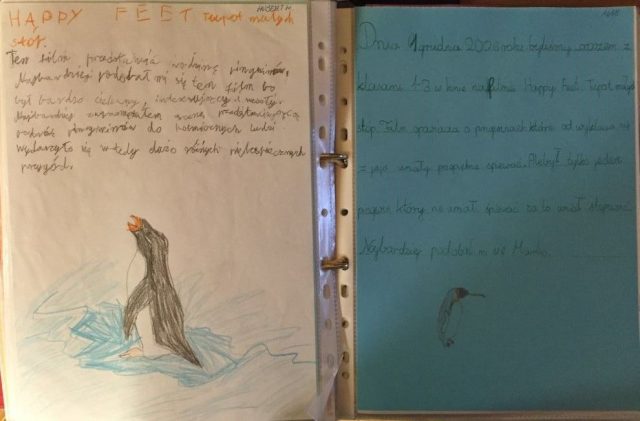 HUBERT M.
HAPPY FEET Tupot małych
stóp.
Ten film przedstawia rodzinę pingwinów.
Najbardziej podobał mi się ten film bo
był bardzo ciekawy, interesujący i wesoły.
Najbardziej
podróż pingwinów do ludzi
wydarzyło się wtedy dużo różnych niebezpiecznych
przygód.
Dnia 1 grudnia 2006 roku byliśmy razem z
klasami 1-3 w kinie na filmie Happy Feet. Tupot małych
stóp. Film opowiada o pingwinach które od wyklucia się
z jaja umiały przepięknie śpiewać. Ale był tylko jeden
pingwin który nie umiał śpiewać za to umiał stepować.
Najbardziej podobał mi się Mambo.